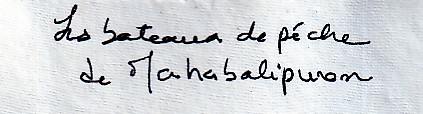 Les bateaux de pêche
de Mahabalipuram